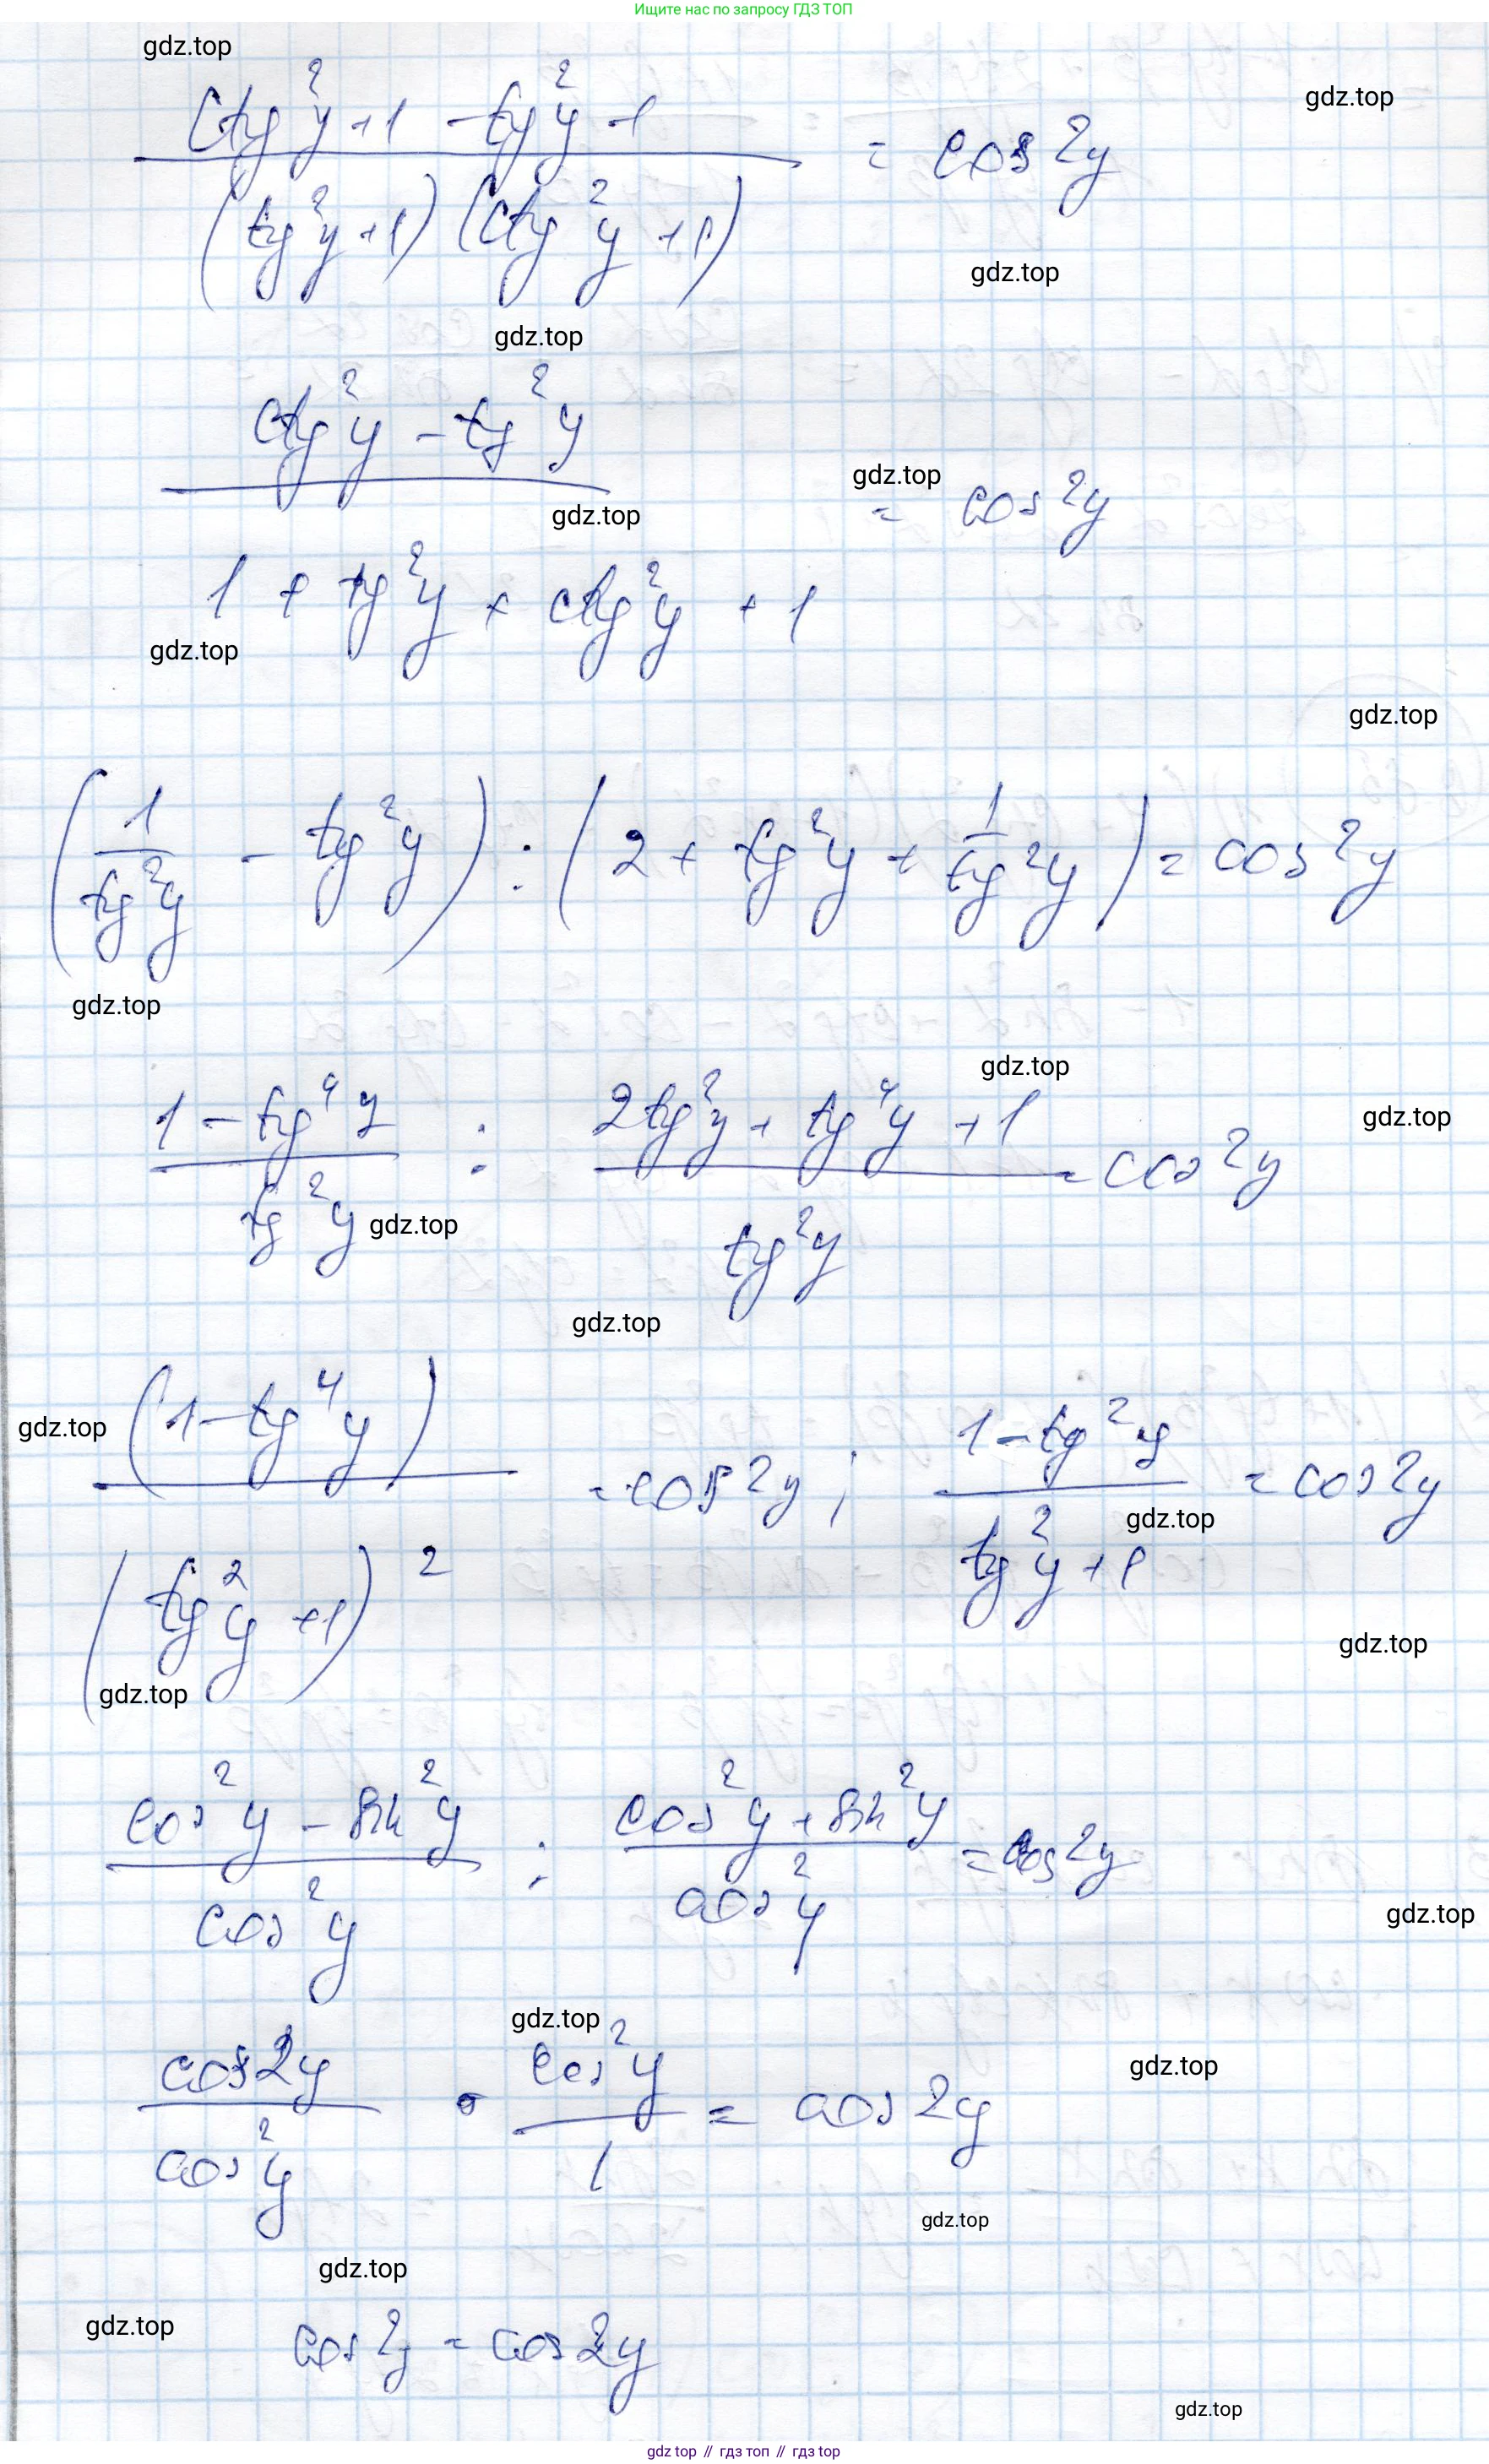 Ищите нас по запросу ГДЗ ТОП
gdz.top
gdz.top
(ctg²y + 1 - tg²y - 1) / ((tg²y + 1)(ctg²y + 1)) = cos 2y
gdz.top
gdz.top
(ctg²y - tg²y) / (1 + tg²y + ctg²y + 1) = cos 2y
gdz.top
gdz.top
gdz.top
gdz.top
(1/tg²y - tg²y) : (2 + tg²y + 1/tg²y) = cos 2y
gdz.top
gdz.top
gdz.top
(1 - tg⁴y)/tg²y : (2tg²y + tg⁴y + 1)/tg²y = cos 2y
gdz.top
gdz.top
gdz.top
(1 - tg⁴y) / (tg²y + 1)² = cos 2y ; (1 - tg²y)/(tg²y + 1) = cos 2y
gdz.top
gdz.top
gdz.top
(cos²y - sin²y)/cos²y : (cos²y + sin²y)/cos²y = cos 2y
gdz.top
gdz.top
gdz.top
cos 2y/cos²y · cos²y/1 = cos 2y
gdz.top
gdz.top
gdz.top
cos 2y = cos 2y
gdz.top
gdz top // гдз топ // гдз top